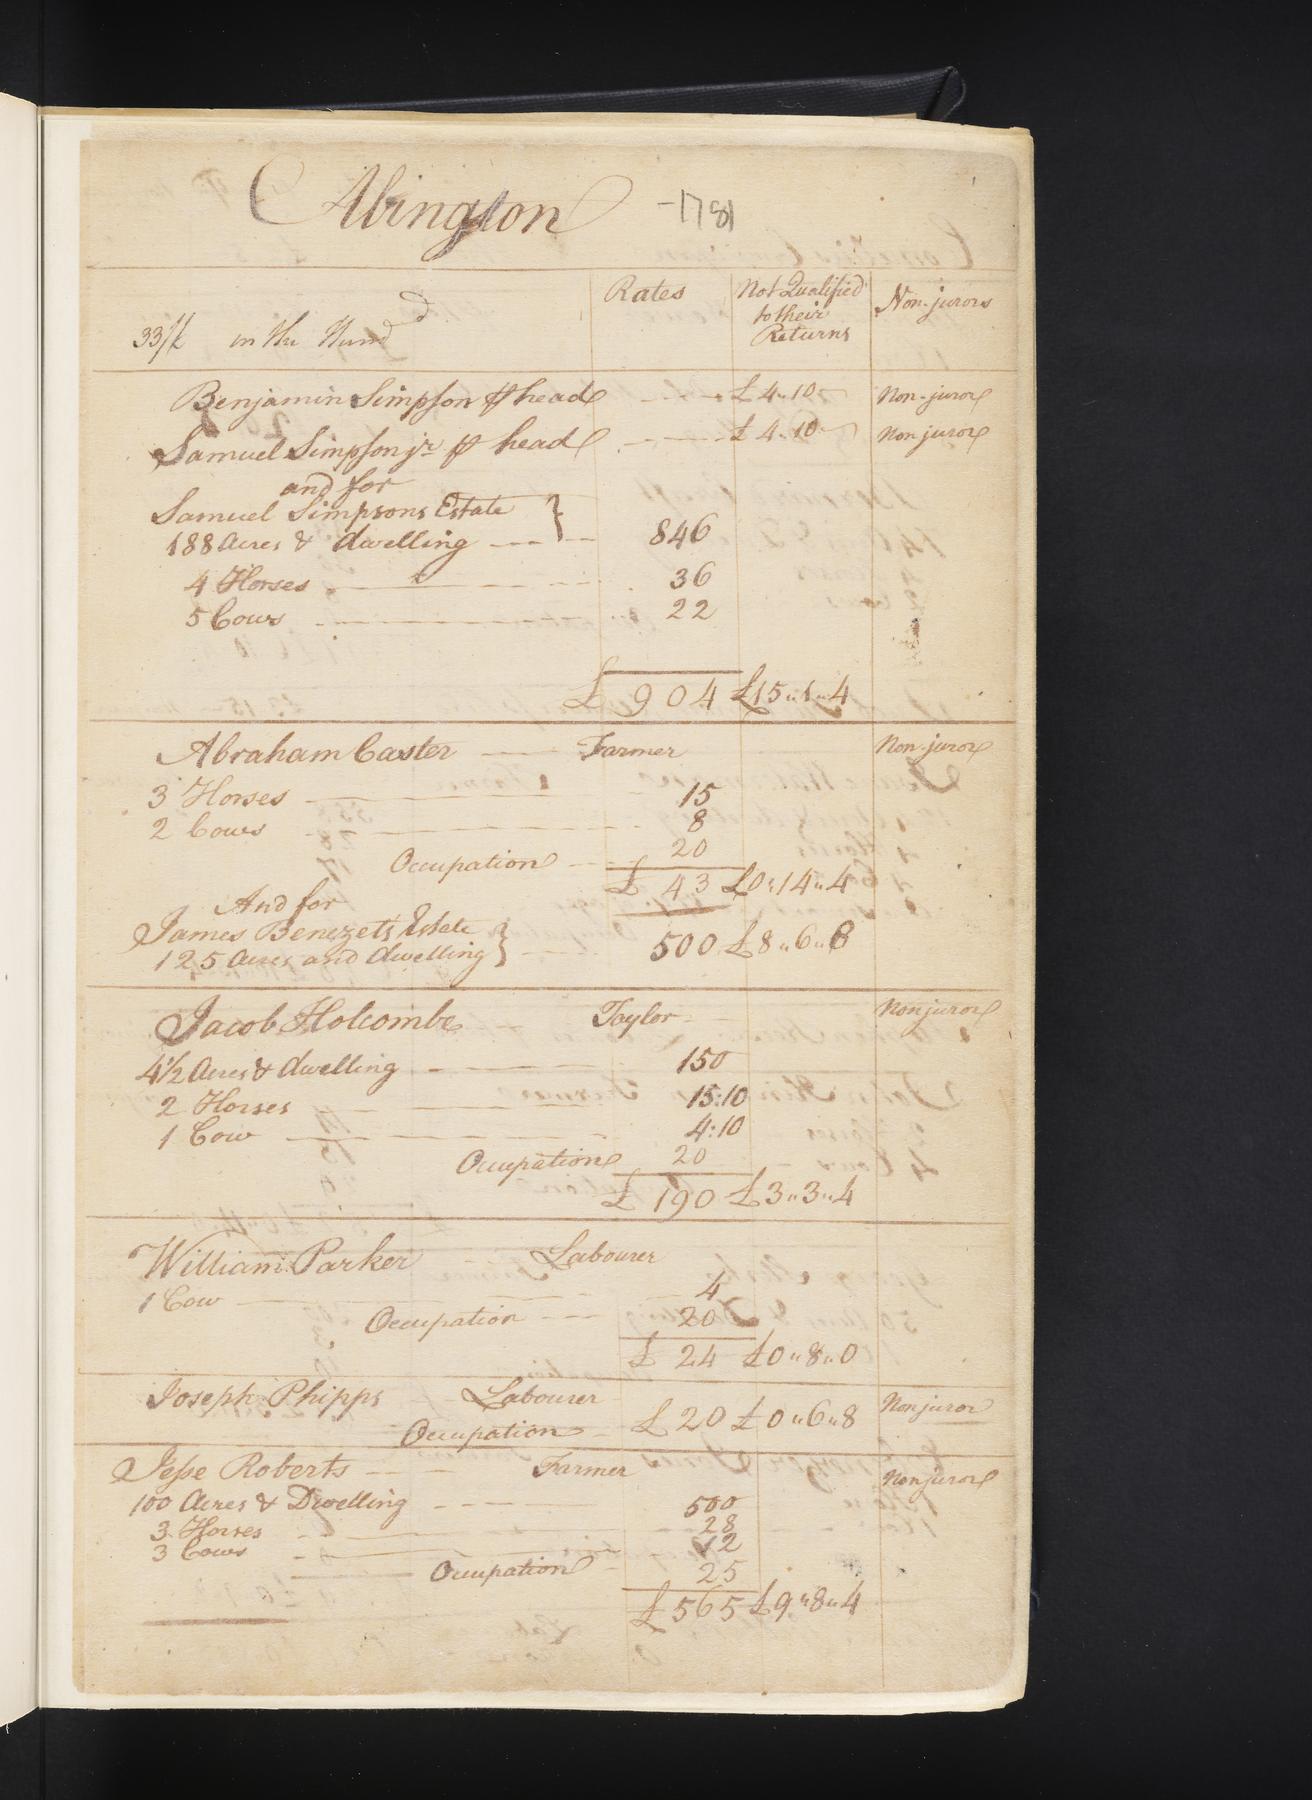 Abington -1781
Rates Not Qualified to their Returns Non-jurors
33/4 in the Hund
Benjamin Simpson ⅌ head £4"10 Non-juror
Samuel Simpson jr ⅌ head £4"10 Non juror
and for
Samuel Simpsons Estate
188 Acres & dwelling 846
4 Horses 36
5 Cows 22
£ 904 £15"1"4
Abraham Caster Farmer Non-juror
3 Horses 15
2 Cows 8
Occupation 20
£ 43 £0"14"4
And for
James Benezets Estate
125 Acres and dwelling 500 £8"6"8
Jacob Holcombe Taylor Nonjuror
4 1/2 Acres & dwelling 150
2 Horses 15:10
1 Cow 4:10
Occupation 20
£ 190 £3"3"4
William Parker Labourer
1 Cow 4
Occupation 20
£ 24 £0"8"0
Joseph Phipps Labourer Nonjuror
Occupation £ 20 £0"6"8
Jesse Roberts Farmer Nonjuror
100 Acres & Dwelling 500
3 Horses 28
3 Cows 12
Occupation 25
£565 £9"8"4